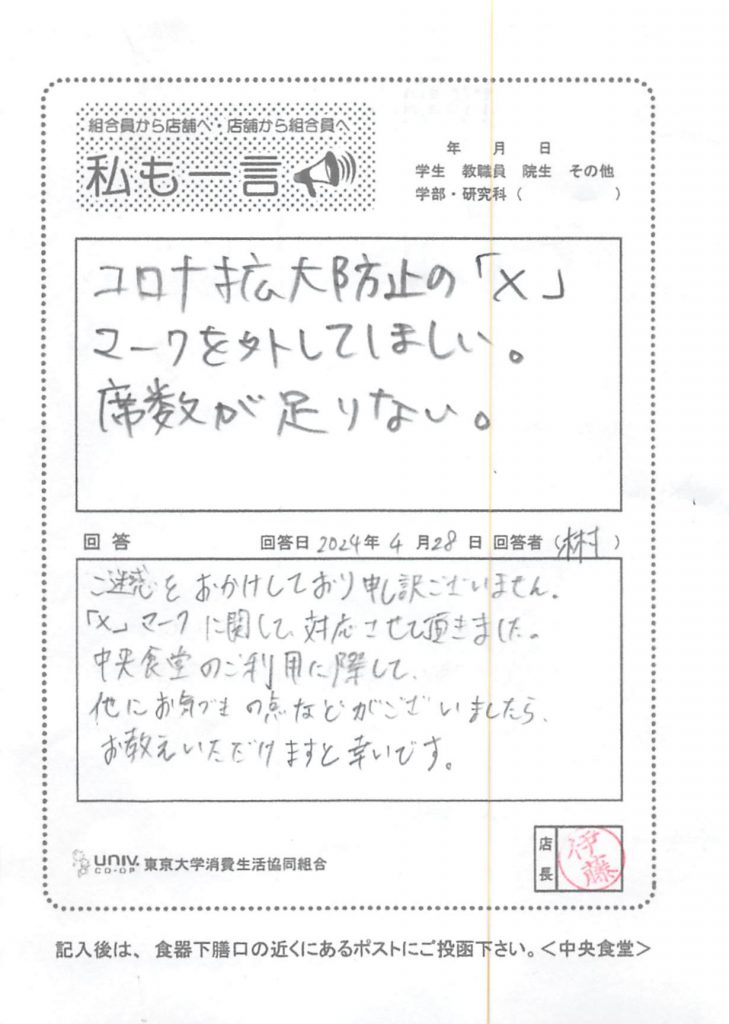 組合員から店舗へ・店舗から組合員へ
私も一言
年 月 日
学生 教職員 院生 その他
学部・研究科（ ）
コロナ拡大防止の「×」
マークを外してほしい。
席数が足りない。
回答 回答日 2024年 4月28日 回答者（林村）
ご迷惑をおかけしており申し訳ございません。
「×」マークに関して、対応させて頂きました。
中央食堂のご利用に際して、
他にお気づきの点などがございましたら、
お教えいただけますと幸いです。
UNIV. CO-OP 東京大学消費生活協同組合
店長 伊藤
記入後は、食器下膳口の近くにあるポストにご投函下さい。＜中央食堂＞